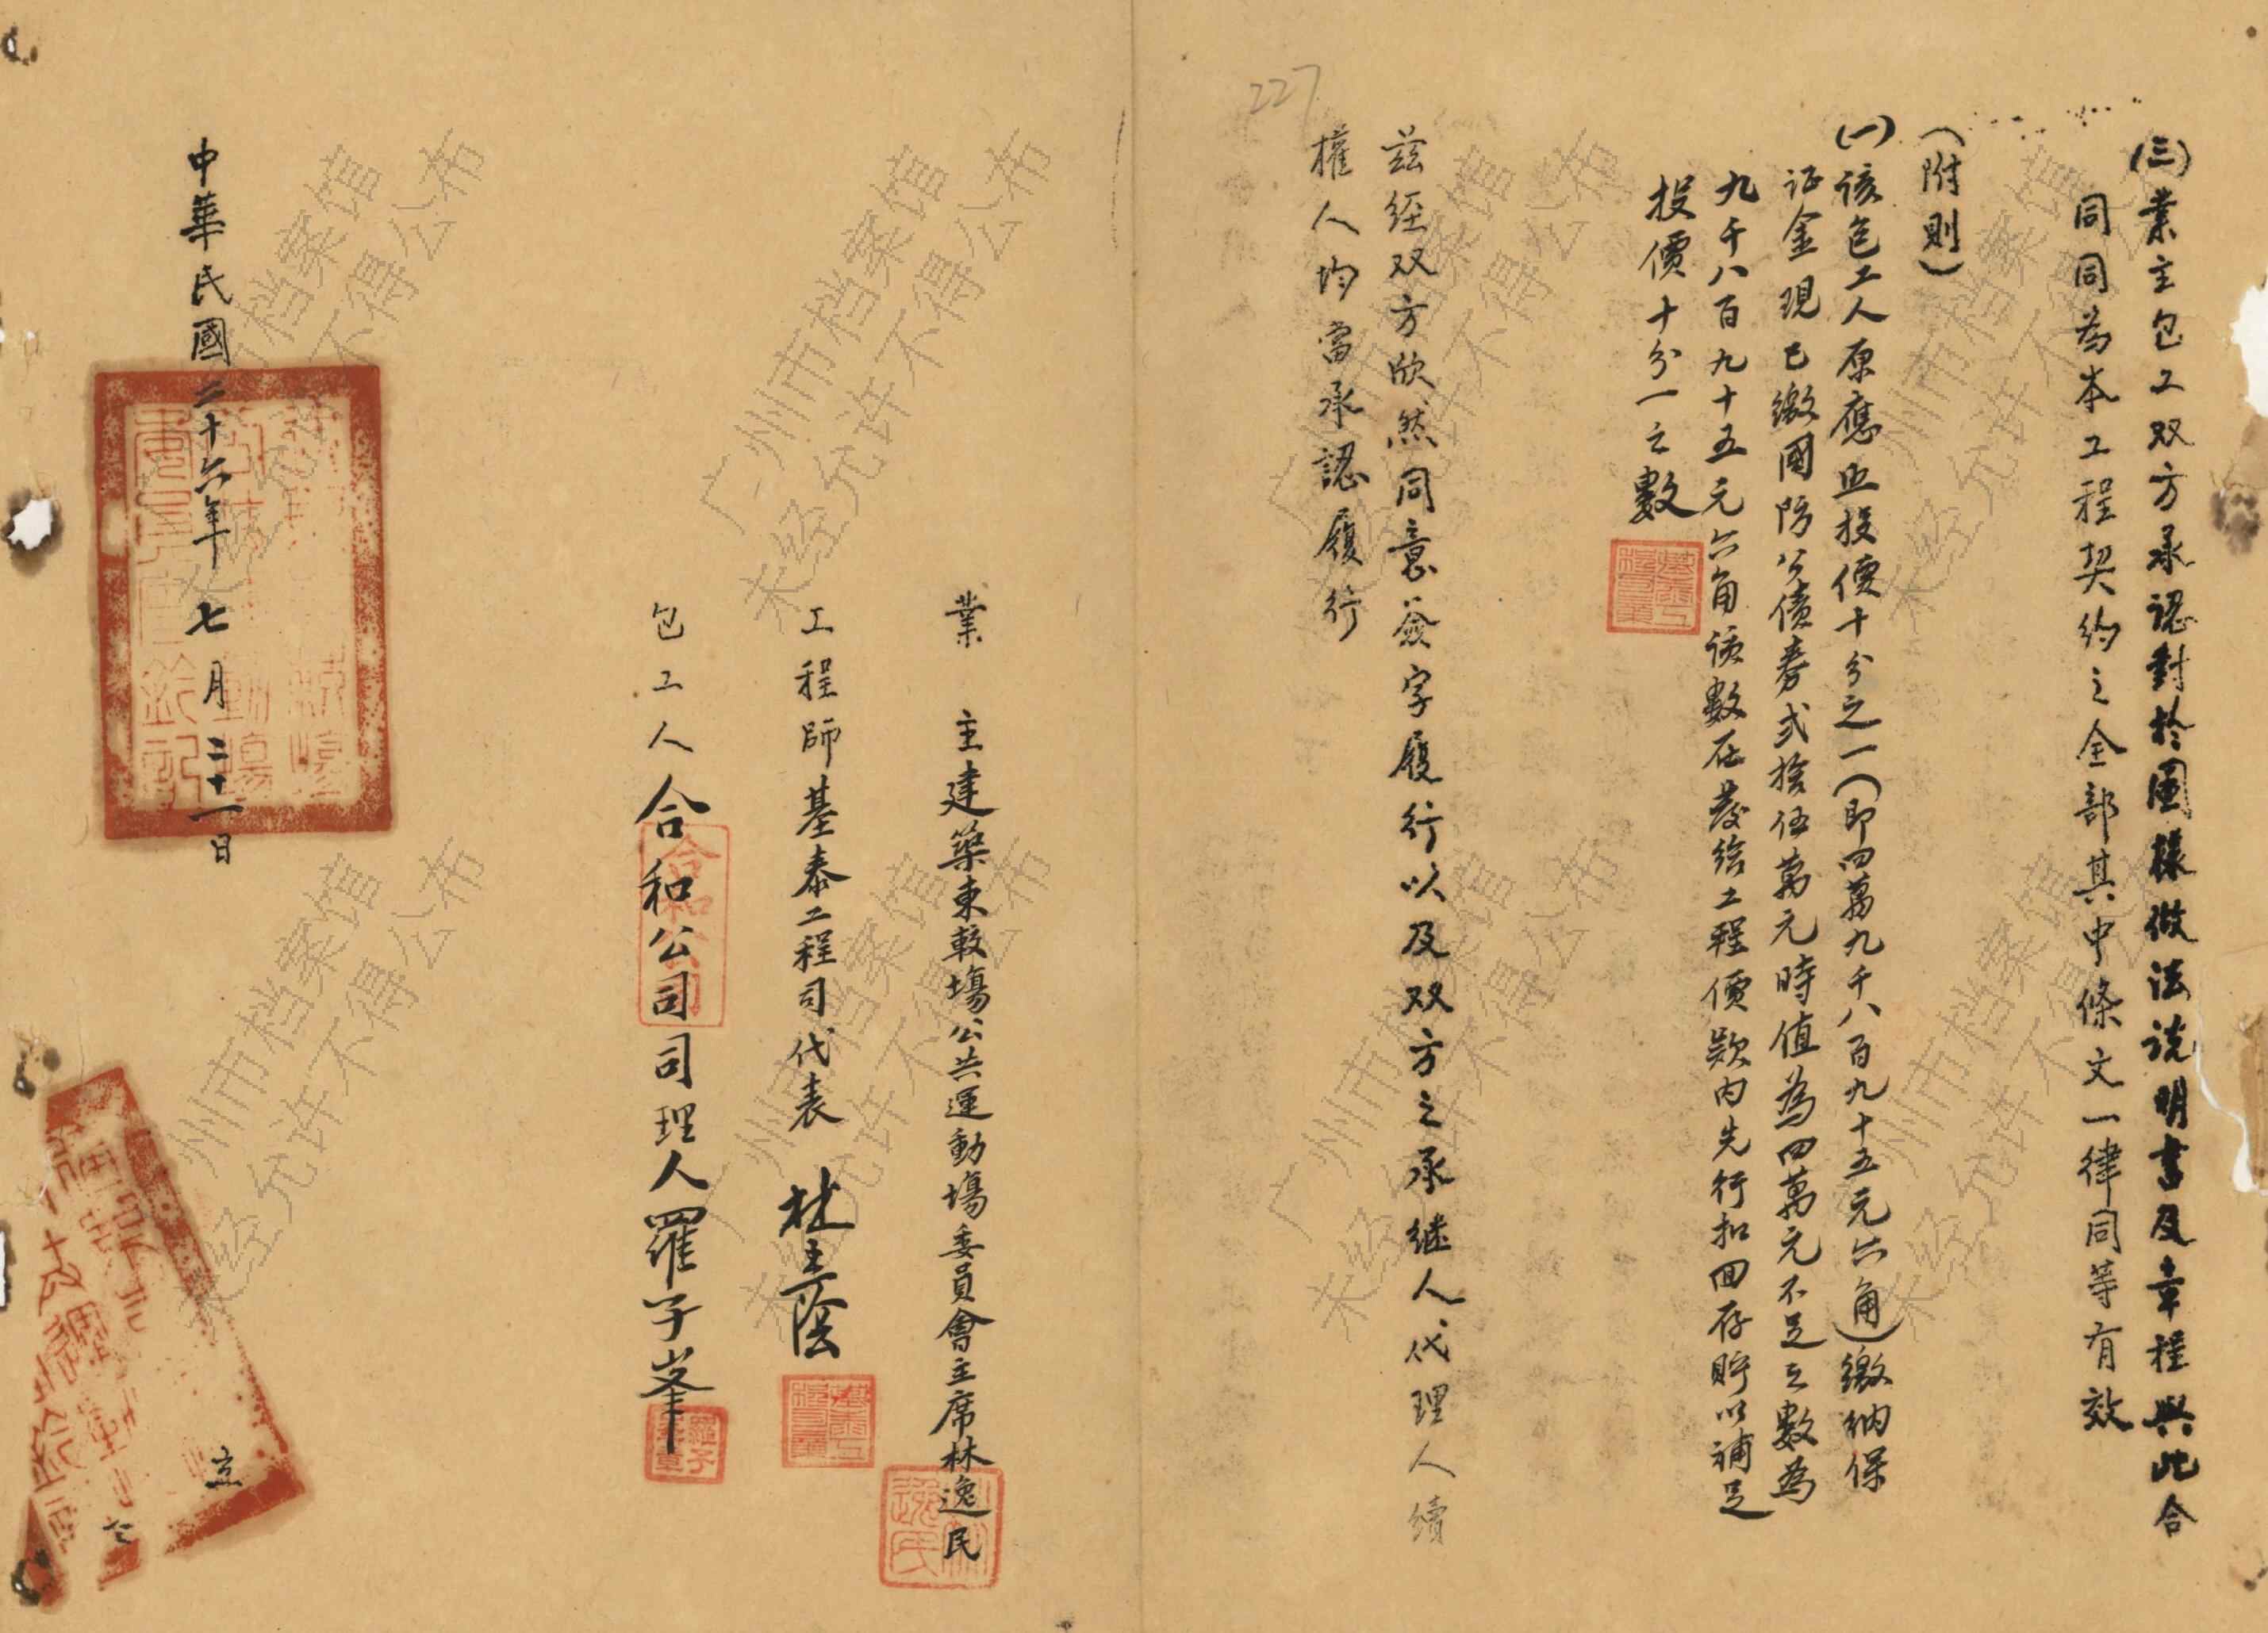 (三)業主包工双方承認對於圖樣做法說明書及章程與此合
同同為本工程契約之全部其中條文一律同等有效
(附則)
(一)該包工人原應照投價十分之一(即四萬九千八百九十五元六角)繳納保
证金現已繳國防公債券弍拾伍萬元時值為四萬元不足之數為
九千八百九十五元六角該數在發給工程價款内先行扣回存貯以補足
投價十分一之數
茲經双方欣然同意簽字履行以及双方之承继人代理人續
權人均當承認履行
227
業主建築東較場公共運動場委員會主席林逸民
工程師基泰工程司代表
包工人合和公司司理人羅子峯
合和公司
中華民國二十六年七月二十一日
立
林逸民
广州市档案馆
未经允许不得公布